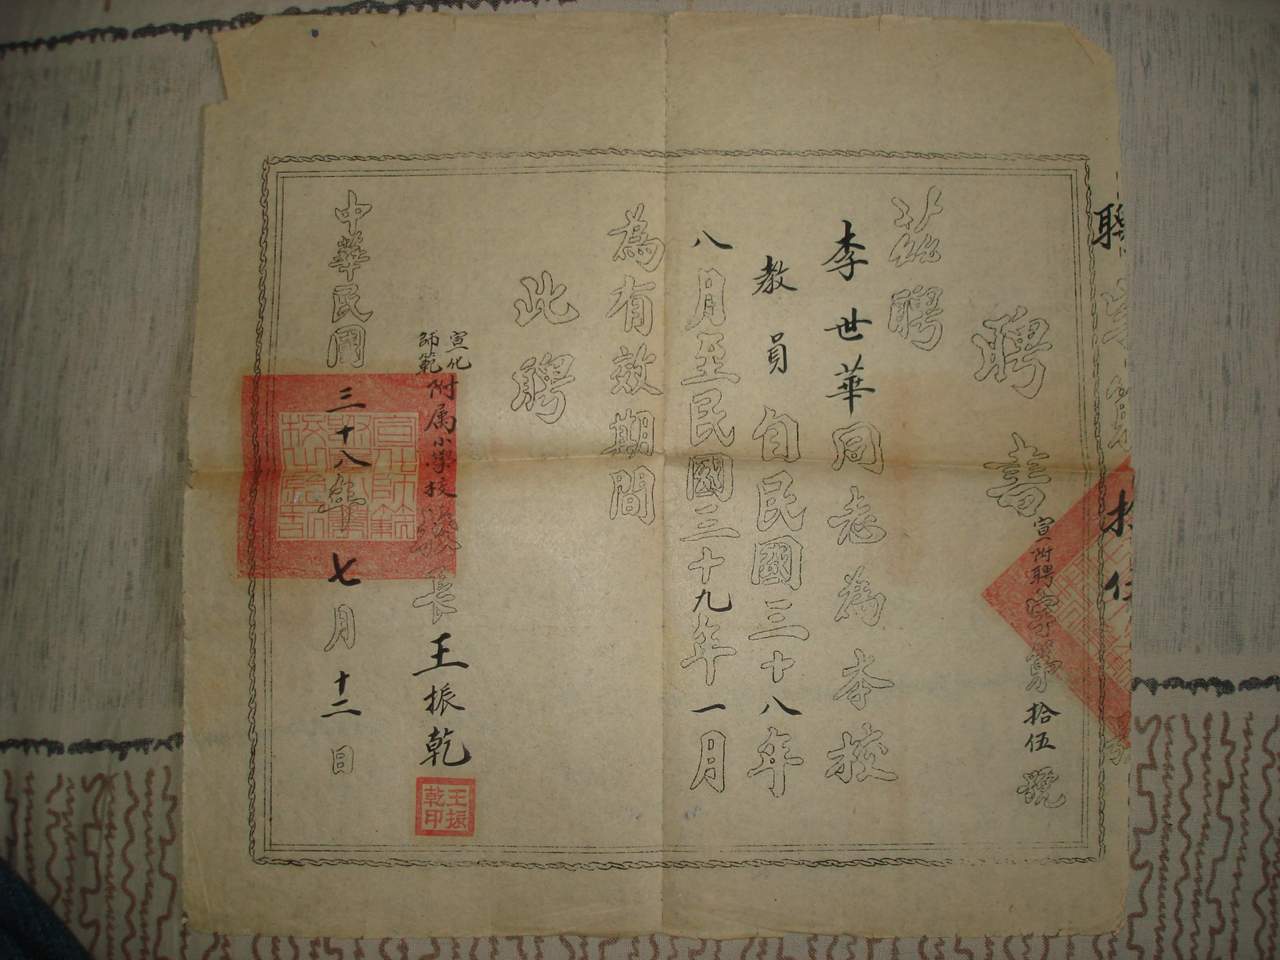 聘
字第
拾伍
號
聘書
宣附聘字第拾伍號
茲聘
李世華同志為本校
教員自民國三十八年
八月至民國三十九年一月
為有效期間
此聘
宣化師範附属小學校校長王振乾
王振乾印
中華民國三十八年七月十二日